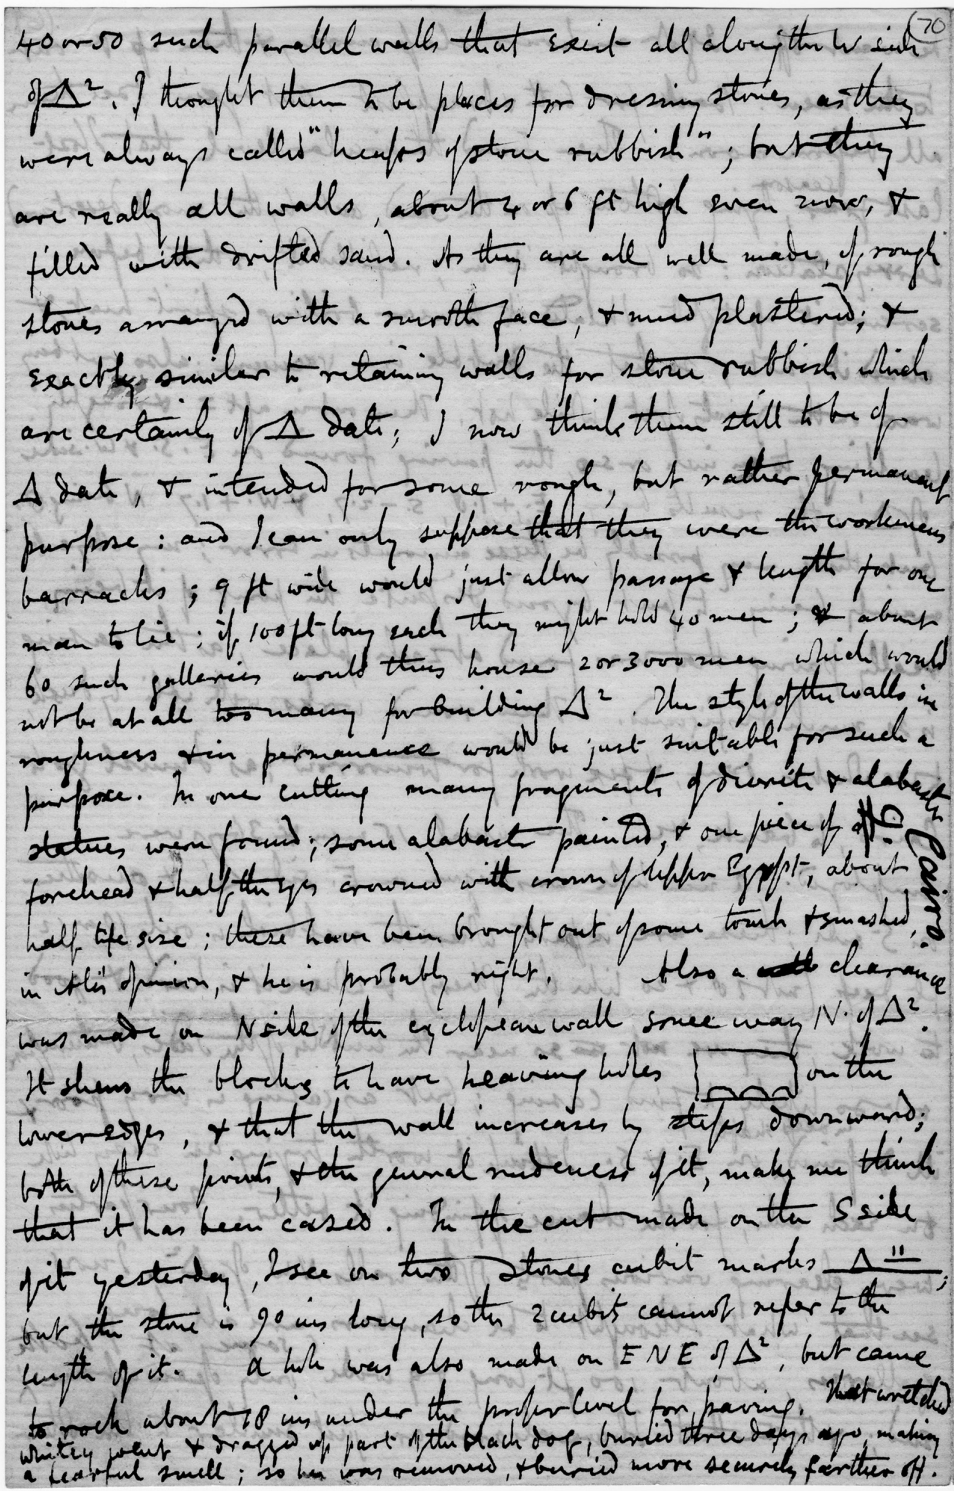 (70
40 or 50 such parallel walls that exist all along the W side
of Δ². I thought them to be places for dressing stones, as they
were always called "heaps of stone rubbish"; but they
are really all walls, about 4 or 6 ft high even now, &
filled with drifted sand. As they are all well made, of rough
stones arranged with a smooth face, & mud plastered; &
exactly similar to retaining walls for stone rubbish which
are certainly of Δ date; I now think them still to be of
Δ date, & intended for some rough, but rather permanent
purpose: and I can only suppose that they were the workmens
barracks; 9 ft wide would just allow passage & length for one
man to lie; if 100 ft long each they might hold 40 men; & about
60 such galleries would thus house 2 or 3000 men which would
not be at all too many for building Δ². The style of the walls in
roughness & in permanence would be just suitable for such a
purpose. In one cutting many fragments of diorite & alabaster
statues were found; some alabaster painted, & one piece of a
forehead & half the eyes crowned with crown of Upper Egypt, about
half life size; these have been brought out of some tomb & smashed,
in Ali's opinion, & he is probably right. Also a clearance
was made on N side of the cyclopean wall some way N. of Δ².
It shews the blocks to have heaving holes on the
lower edges, & that the wall increases by steps downward;
both of these points, & the general rudeness of it, make me think
that it has been cased. In the cut made on the S side
of it yesterday, I see on two stones cubit marks Δ II;
but the stone is 90 ins long, so the 2 cubits cannot refer to the
length of it. A hole was also made on ENE of Δ², but came
to rock about 18 ins under the proper level for paving. That wretched
Whitey went & dragged up part of the black dog, buried three days ago, making
a fearful smell; so he was removed, & buried more securely farther off.
Cairo.